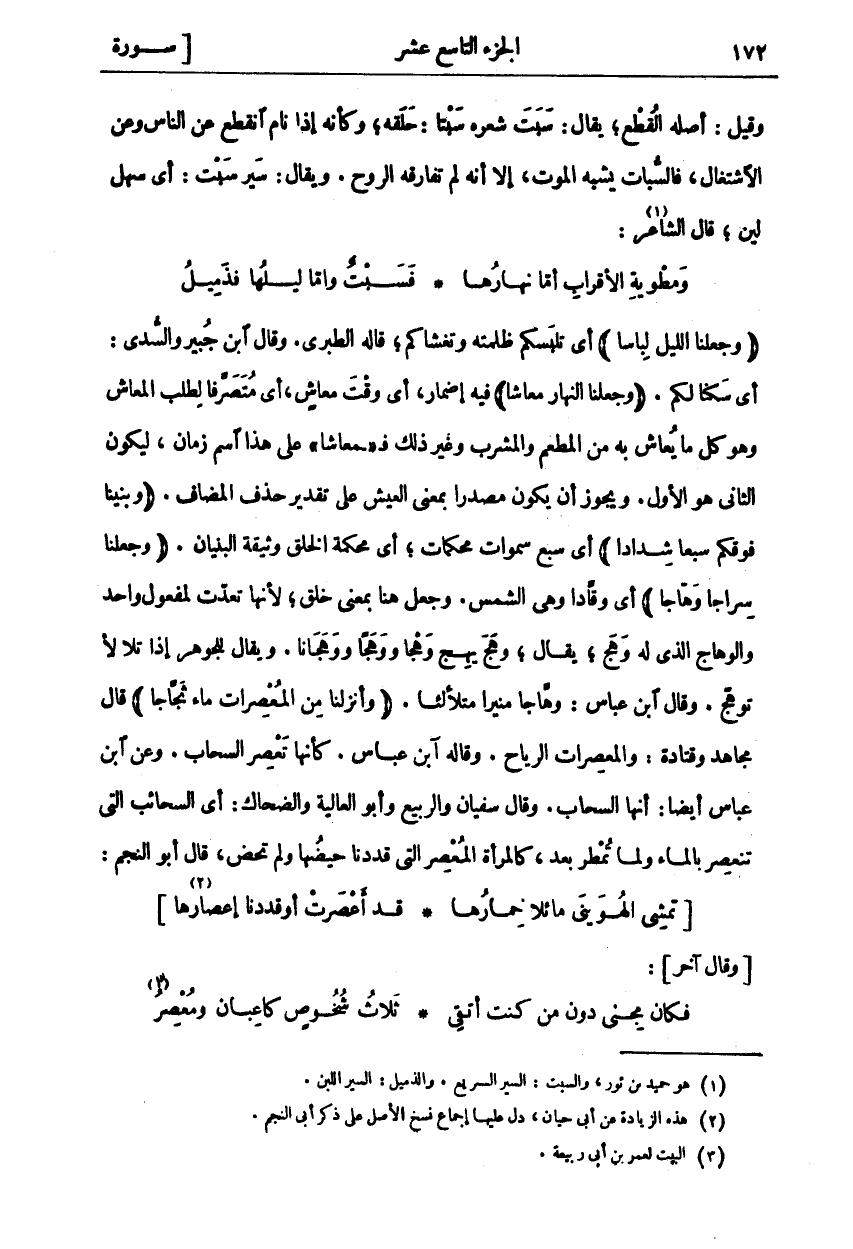 ١٧٢ الجزء التاسع عشر [ ســورة
وقيل : أصله القَطْع؛ يقال : سَبَتَ شعره سَبْتا : حَلَقه؛ وكأنه إذا نام ٱنقطع عن الناس وعن
الاشتغال، فالسُّبات يشبه الموت، إلا أنه لم تفارقه الروح . ويقال : سَير سَبْت : أى سهل
لين ؛ قال الشاعر (١) :
ومَطْويةِ الأقرابِ أمّا نهارُها * فَسَـبْتٌ وامّا ليـلُها فذَمِيلُ
﴿ وجعلنا الليل لِباسا ﴾ أى تلبَسكم ظلمته وتغشاكم؛ قاله الطبرى. وقال ٱبن جُبير والسُّدى :
أى سَكنا لكم . ﴿وجعلنا النهار معاشا﴾ فيه إضمار، أى وقْتَ معاشٍ، أى مُتَصَرَّفا لطلب المعاش
وهو كل ما يُعاش به من المطعم والمشرب وغير ذلك فـ«ـمعاشا» على هذا ٱسم زمان ، ليكون
الثانى هو الأول. ويجوز أن يكون مصدرا بمعنى العيش على تقدير حذف المضاف . ﴿وبنينا
فوقكم سبعا شِدادا ﴾ أى سبع سموات محكمات ؛ أى محكمة الخلق وثيقة البنيان . ﴿ وجعلنا
سِراجا وَهّاجا ﴾ أى وقّادا وهى الشمس. وجعل هنا بمعنى خلق؛ لأنها تعدّت لمفعول واحد
والوهاج الذى له وَهَج ؛ يقـال ؛ وهَجَ يهِـج وَهْجا ووَهَجًا ووَهَجَانا . ويقال للجوهر إذا تلالأ
توهّج . وقال ٱبن عباس : وهّاجا منيرا متلألئـا . ﴿ وأنزلنا مِن المُعْصِرات ماء ثَجّاجا ﴾ قال
مجاهد وقتادة : والمعصرات الرياح . وقاله ٱبن عبـاس . كأنها تَعْصِر السحاب . وعن ٱبن
عباس أيضا : أنها السحاب. وقال سفيان والربيع وأبو العالية والضحاك : أى السحائب التى
تنعصر بالمـاء ولمـا تُمْطر بعد ، كالمرأة المُعْصِر التى قددنا حيضُها ولم تحض، قال أبو النجم :
[ تمشِى الهُوَيْنَى مائلا خِمـارُهـا * قـد أَعْصَرتْ أو قددنا إعصارها ] (٢)
[ وقال آخر ] :
فـكان مِجـنى دون من كنت أتـقِى * ثَلاثُ شُخُـوصٍ كاعِبـان ومُعْصِرُ (٣)
(١) هو حميد بن ثور، والسبت : السير السريع . والذميل : السير اللين .
(٢) هذه الزيادة عن أبى حيان ، دل عليهـا إجماع نسخ الأصل على ذكر أبى النجم .
(٣) البيت لعمر بن أبى ربيعة .